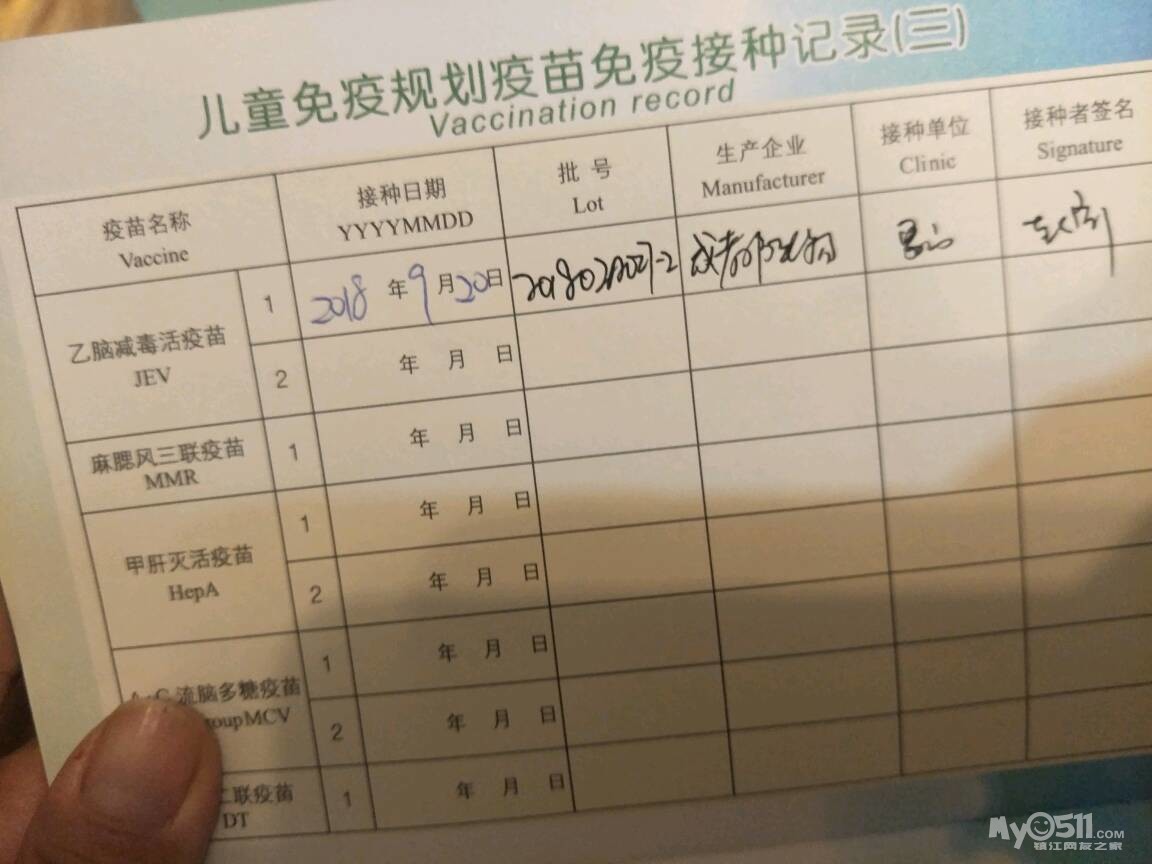 儿童免疫规划疫苗免疫接种记录(三)
Vaccination record
疫苗名称
Vaccine
接种日期
YYYYMMDD
批 号
Lot
生产企业
Manufacturer
接种单位
Clinic
接种者签名
Signature
乙脑减毒活疫苗
JEV
1
2018 年 9 月 20 日
2
年 月 日
麻腮风三联疫苗
MMR
1
年 月 日
甲肝灭活疫苗
HepA
1
年 月 日
2
年 月 日
流脑多糖疫苗
MCV
1
年 月 日
2
年 月 日
联疫苗
DT
1
年 月 日
My0511.COM
镇江网友之家